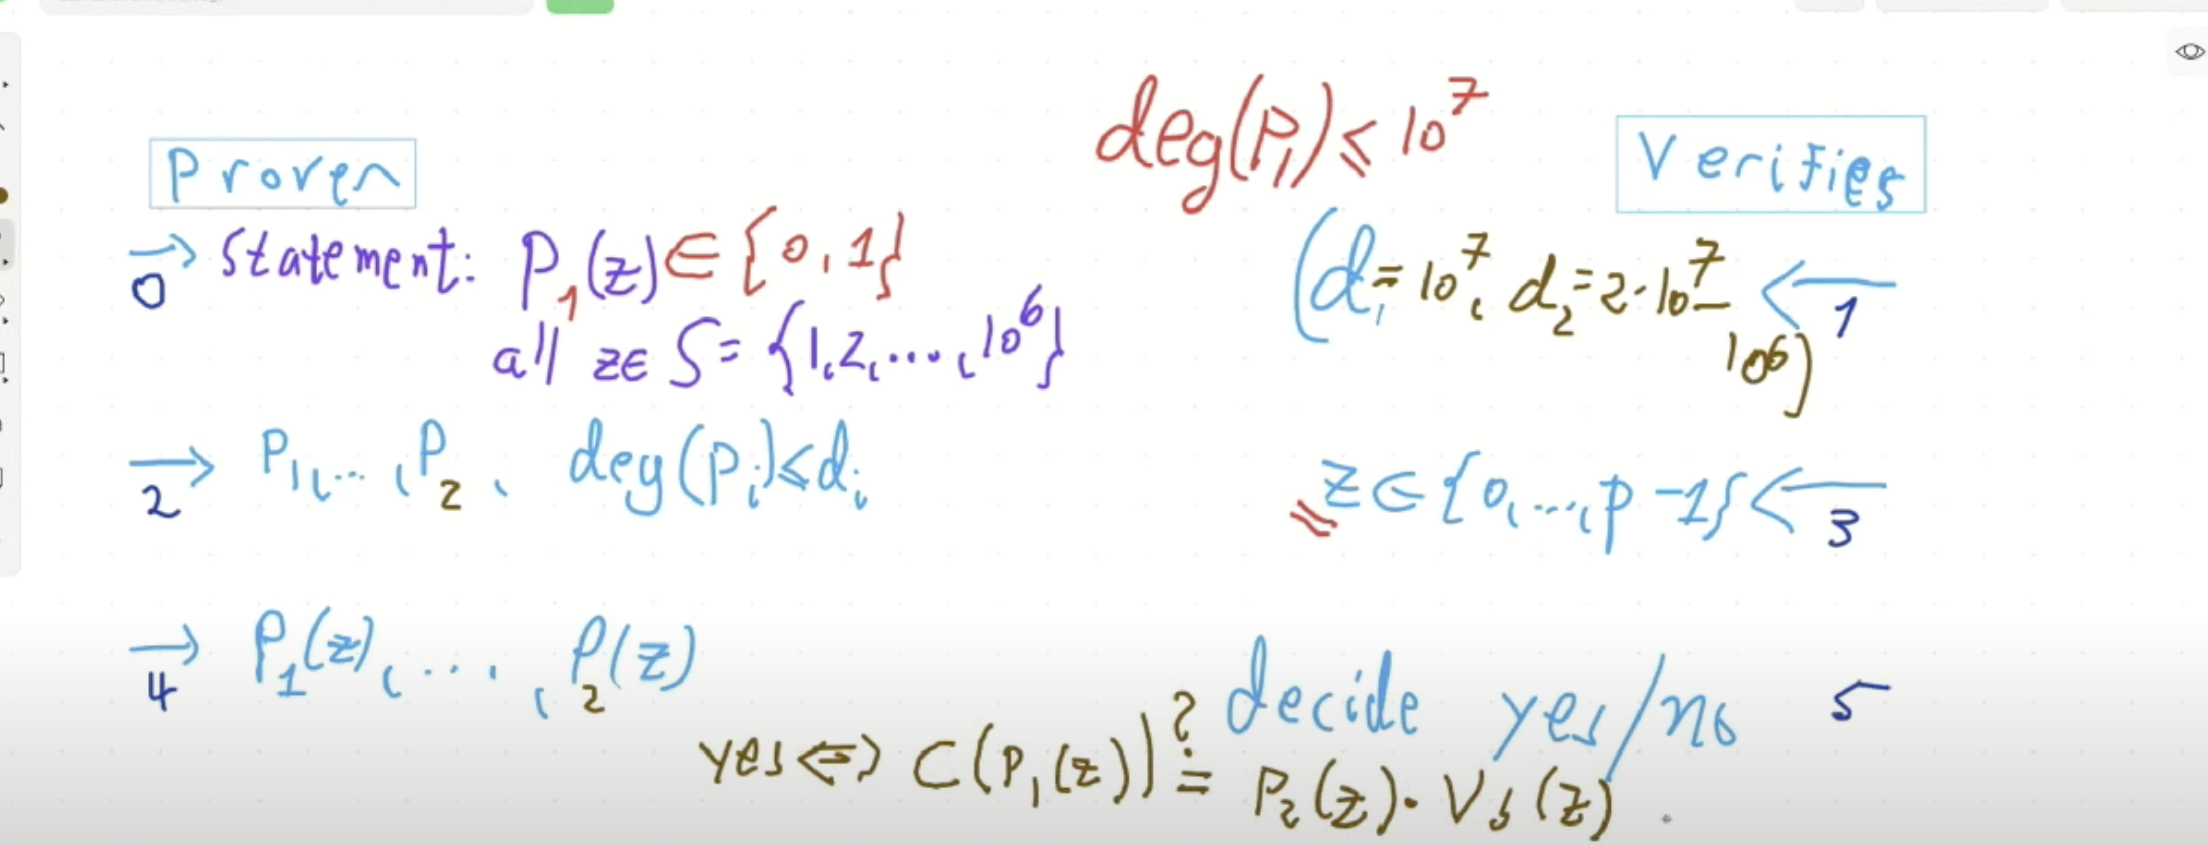 deg(P₁) ≤ 10⁷
Prover
Verifies
0 → Statement: P₁(z) ∈ {0, 1}
all z ∈ S = {1, 2, ..., 10⁶}
(d₁ = 10⁷, d₂ = 2·10⁷ − 10⁶) ← 1
2 → P₁, ..., P₂, deg(Pᵢ) ≤ dᵢ
z ∈ {0, ..., p − 1} ← 3
4 → P₁(z), ..., P₂(z)
decide yes/no 5
yes ⇔ C(P₁(z)) ≟ P₂(z) · Vₛ(z)